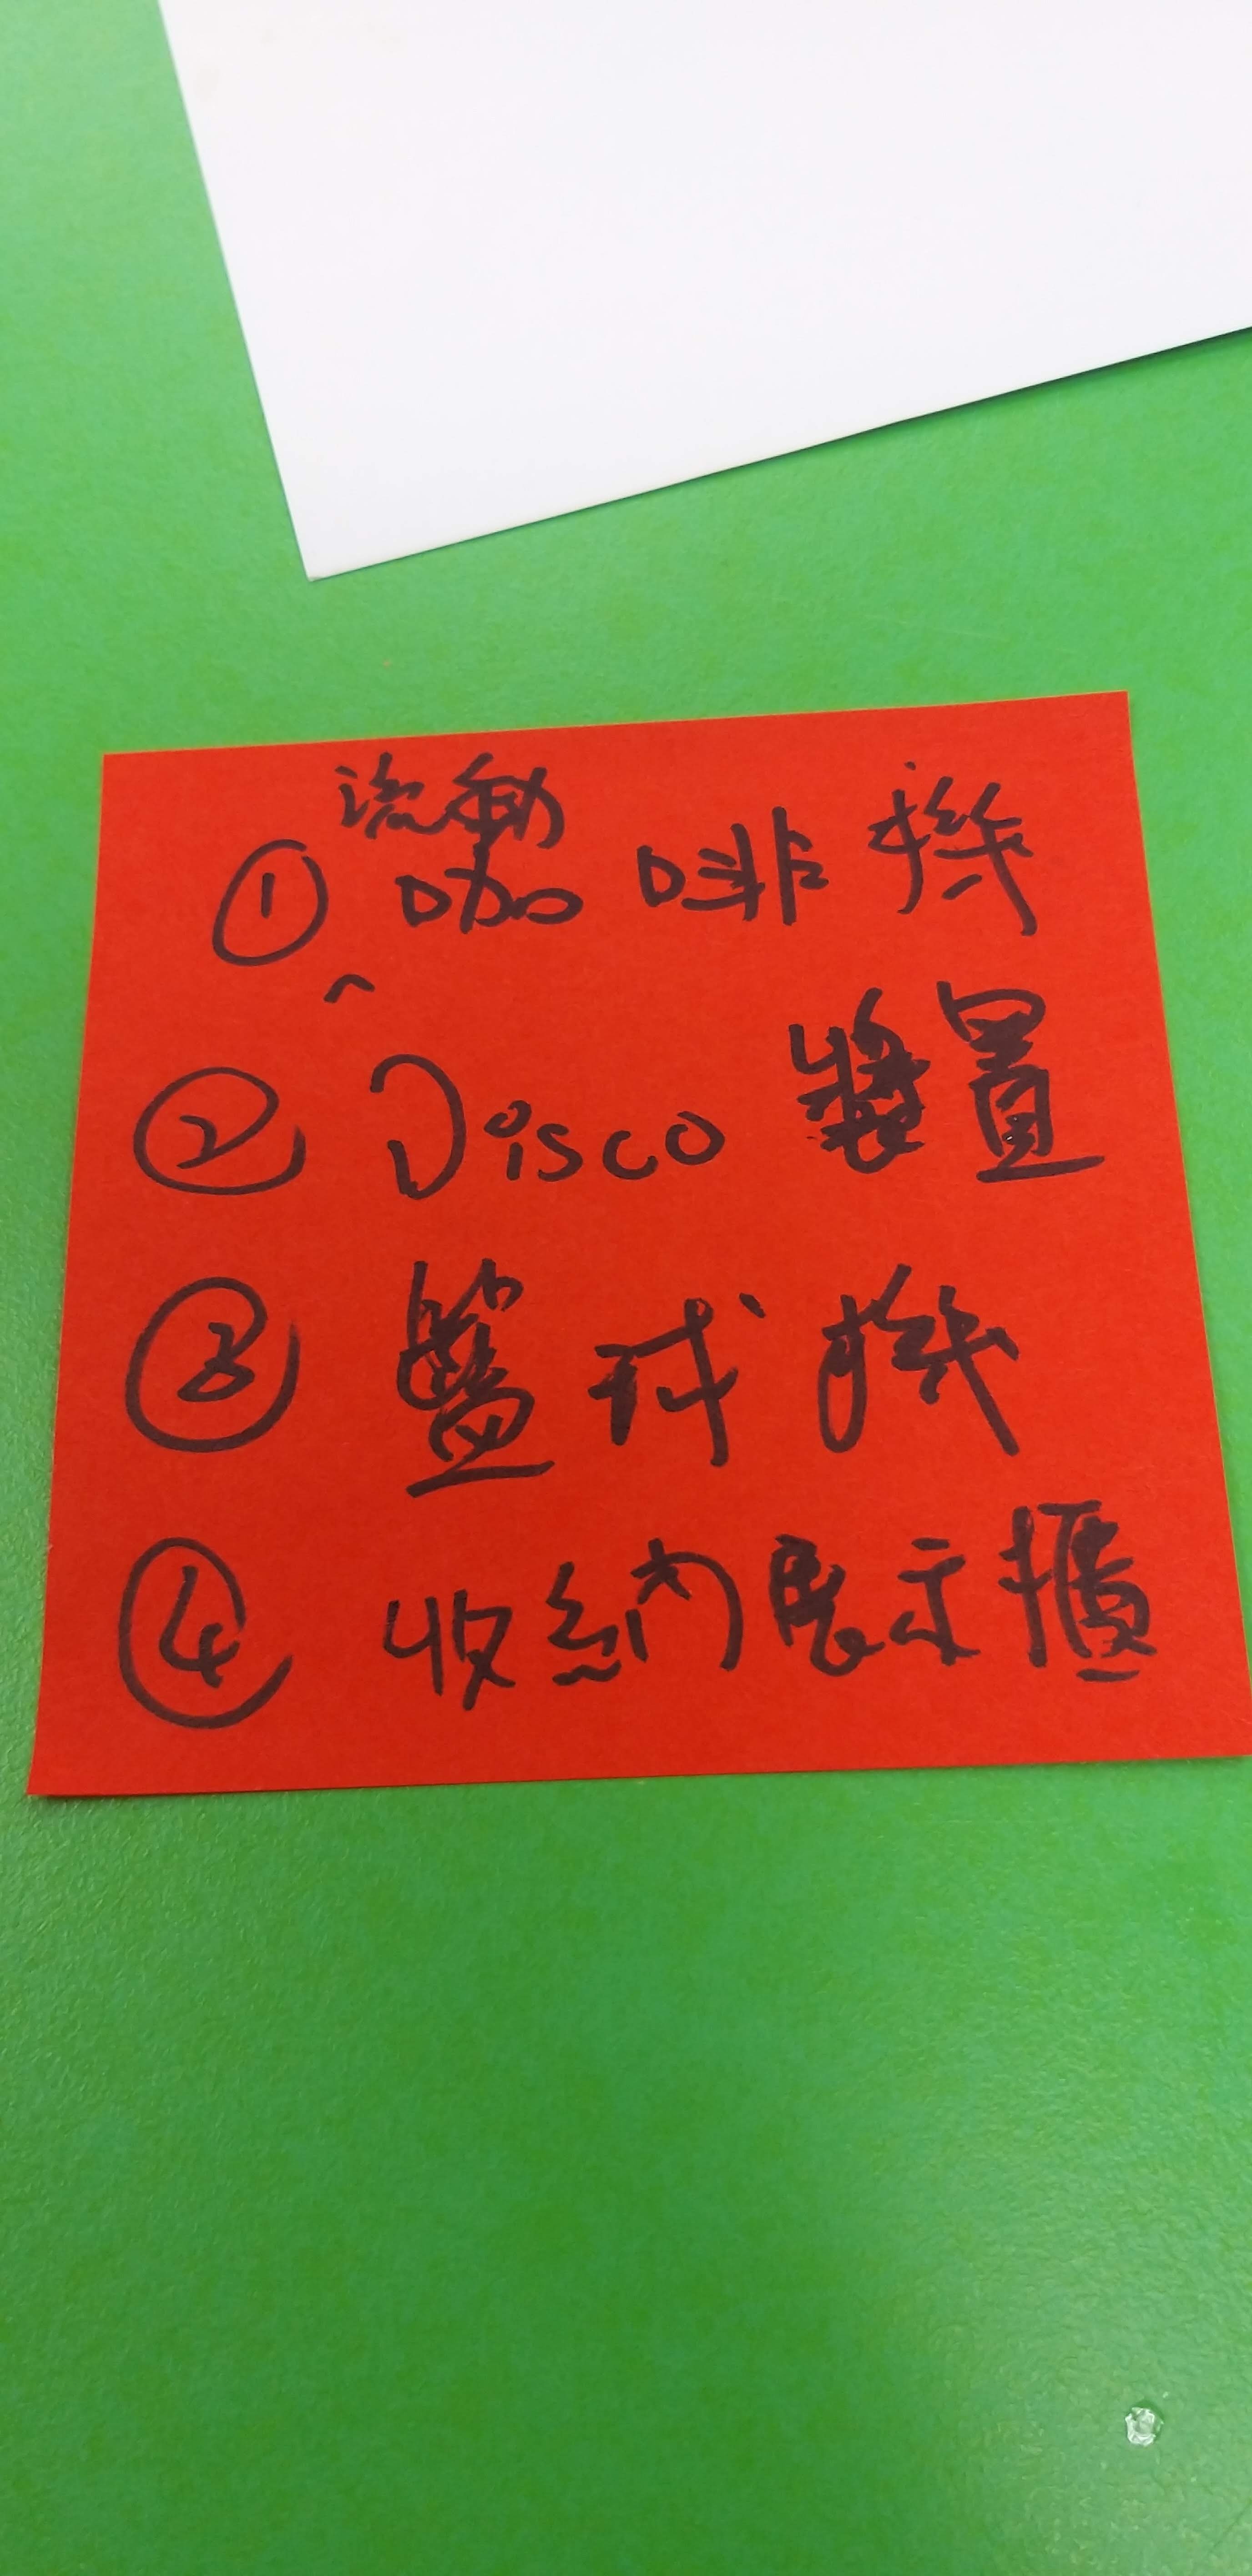 ① 流動咖啡機
② Disco 裝置
③ 籃球機
④ 收納展示櫃